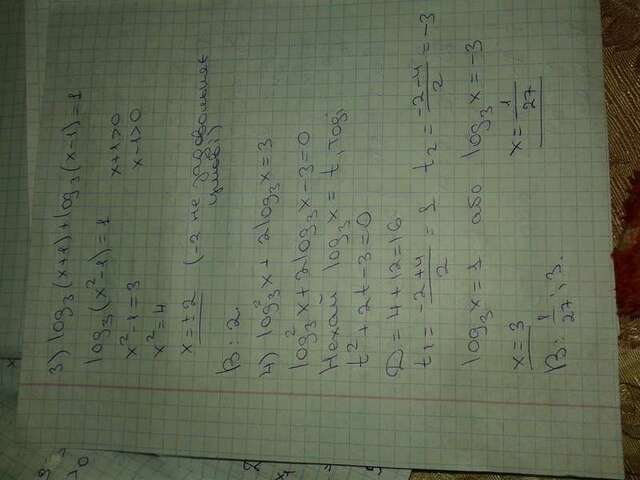 3) log₃(x+1)+log₃(x-1)=1
log₃(x²-1)=1
x+1>0
x²-1=3
x-1>0
x²=4
x=±2 (-2 не задовольняє умові)
В: 2.
4) log₃²x+2log₃x=3
log₃²x+2log₃x-3=0
Нехай log₃x=t, тоді
t²+2t-3=0
D=4+12=16
t₁=(-2+4)/2=1 t₂=(-2-4)/2=-3
log₃x=1 або log₃x=-3
x=3 x=1/27
В: 1/27; 3.